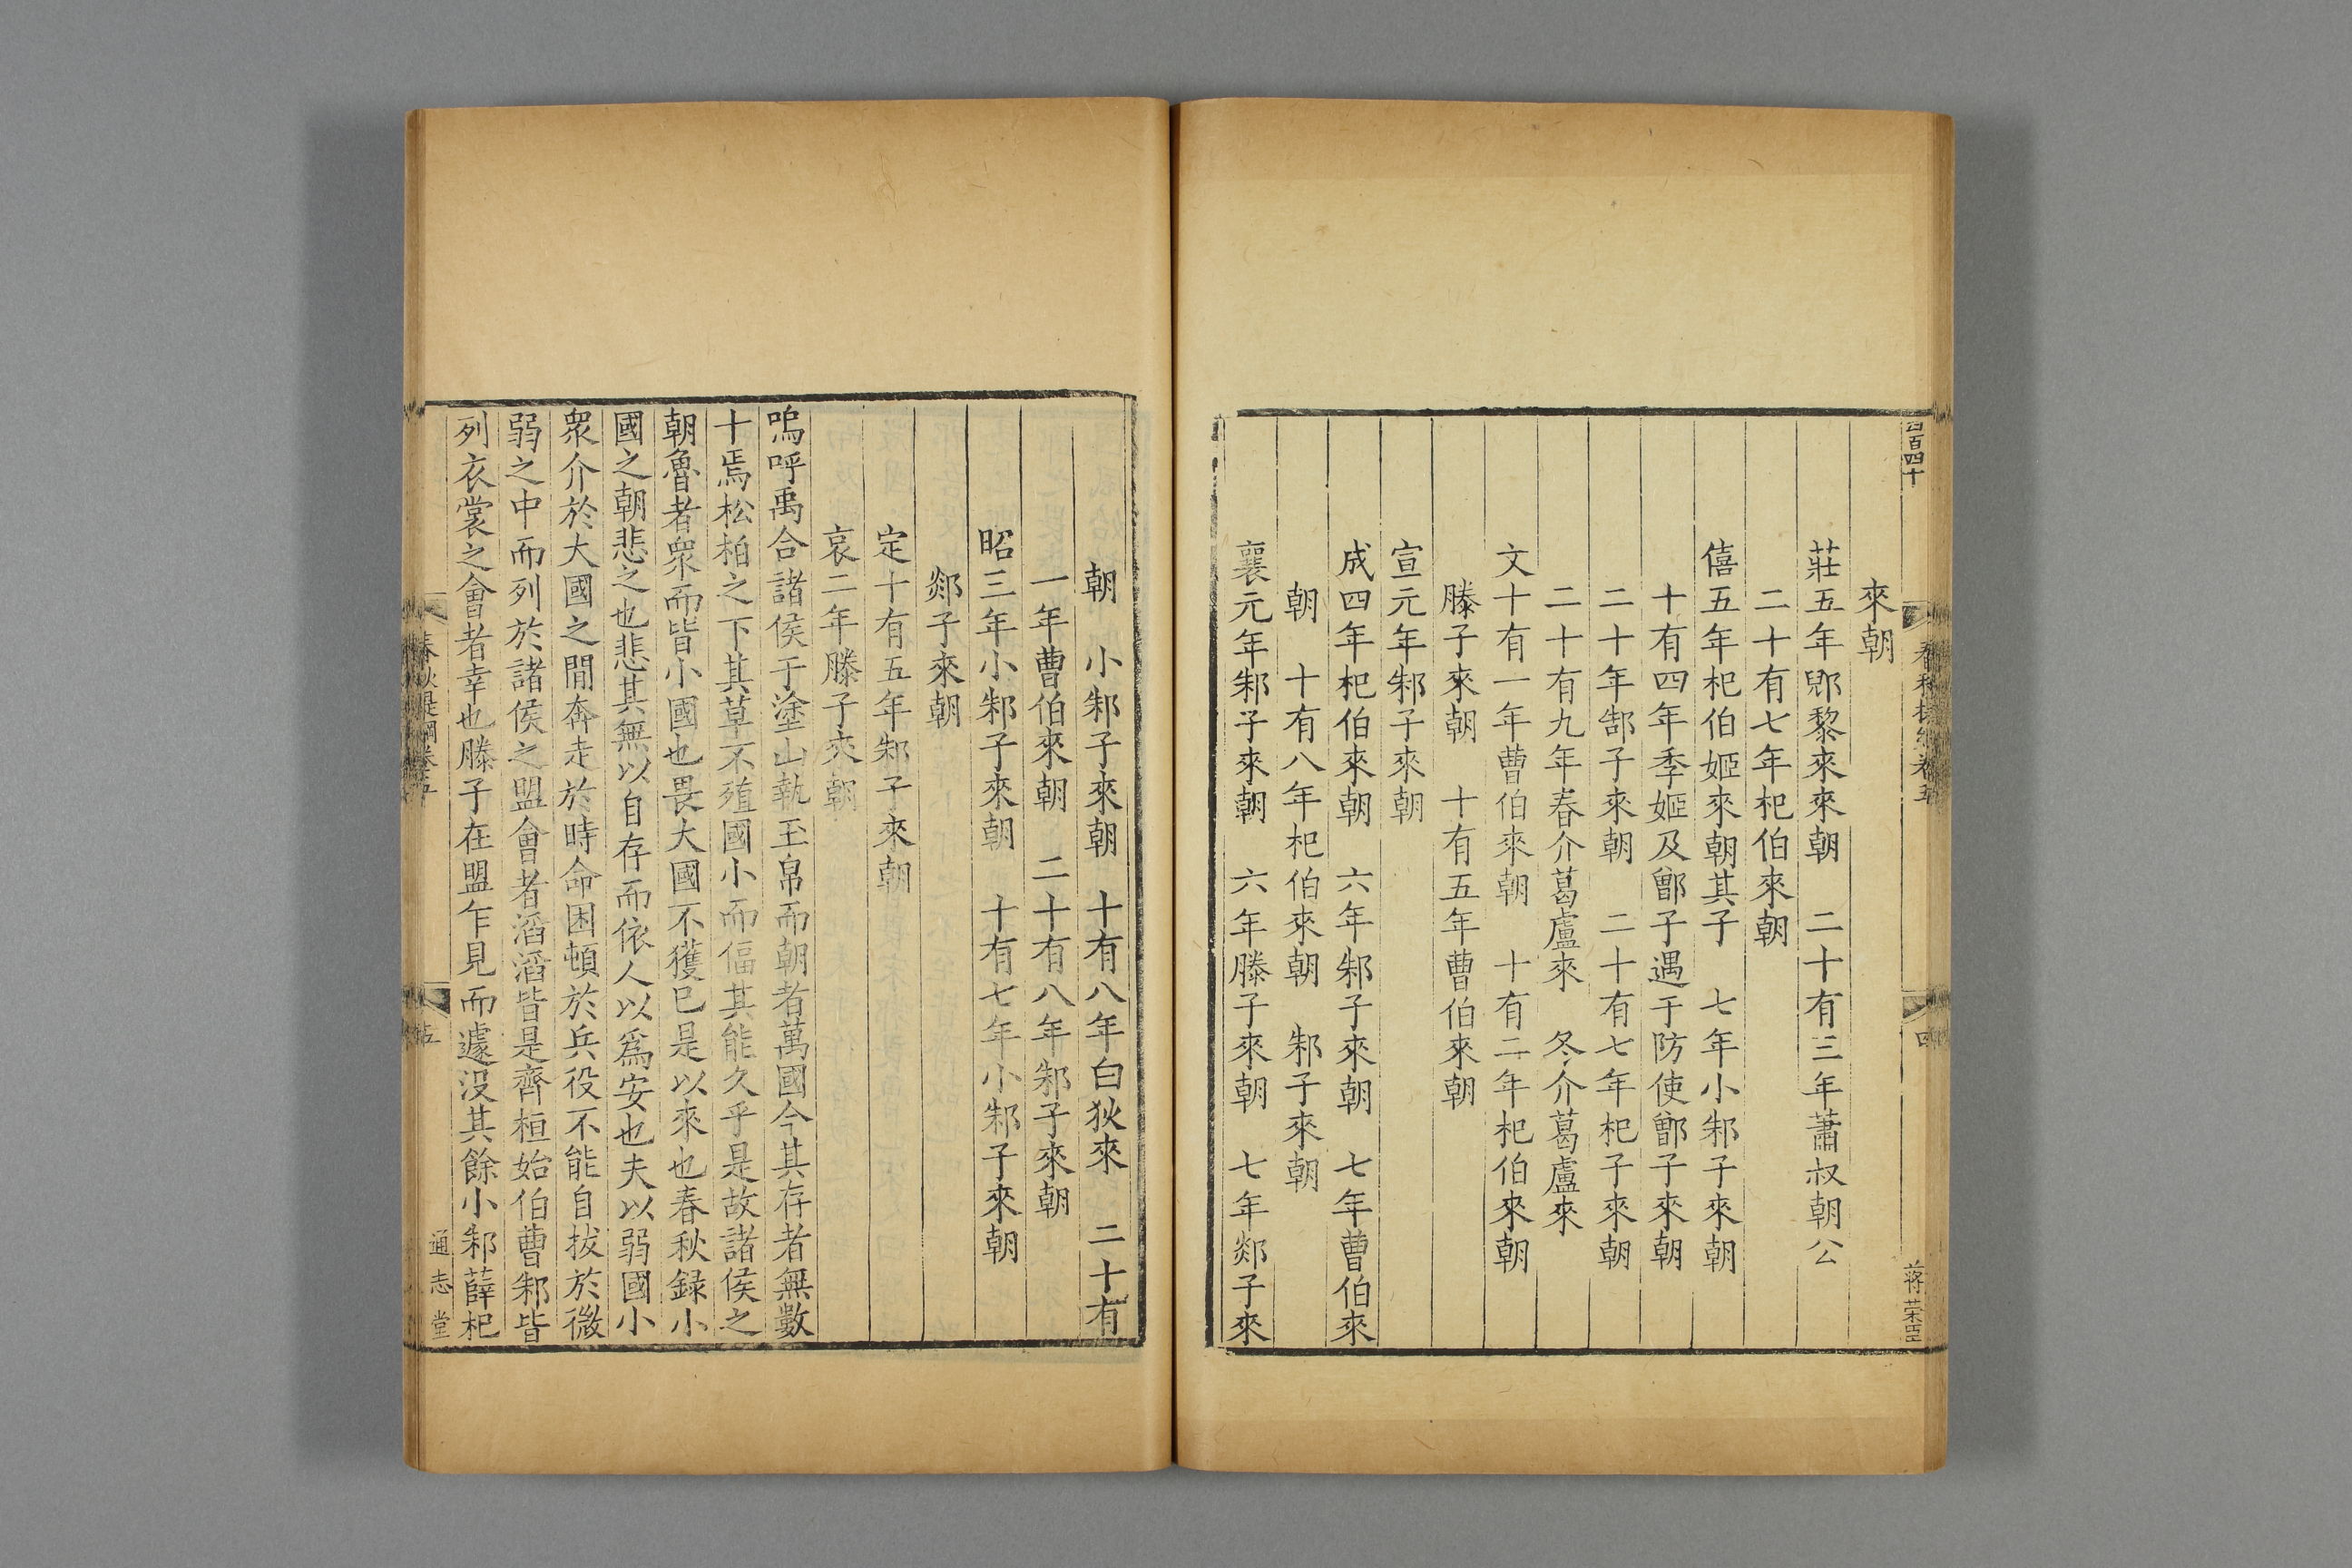 四百四十
四
蔣榮臣
來朝
莊五年郳黎來來朝　二十有三年蕭叔朝公
二十有七年杞伯來朝
僖五年杞伯姬來朝其子　七年小邾子來朝
十有四年季姬及鄫子遇于防使鄫子來朝
二十年郜子來朝　二十有七年杞子來朝
二十有九年春介葛盧來　冬介葛盧來
文十有一年曹伯來朝　十有二年杞伯來朝
滕子來朝　十有五年曹伯來朝
宣元年邾子來朝
成四年杞伯來朝　六年邾子來朝　七年曹伯來
朝　十有八年杞伯來朝　邾子來朝
襄元年邾子來朝　六年滕子來朝　七年郯子來
朝　小邾子來朝　十有八年白狄來　二十有
一年曹伯來朝　二十有八年邾子來朝
昭三年小邾子來朝　十有七年小邾子來朝
郯子來朝
定十有五年邾子來朝
哀二年滕子來朝
嗚呼禹合諸侯于塗山執玉帛而朝者萬國今其存者無數
十焉松柏之下其草不殖國小而偪其能久乎是故諸侯之
朝魯者衆而皆小國也畏大國不獲已是以來也春秋録小
國之朝悲之也悲其無以自存而依人以爲安也夫以弱國小
衆介於大國之間奔走於時命困頓於兵役不能自拔於微
弱之中而列於諸侯之盟會者滔滔皆是齊桓始伯曹邾皆
列衣裳之會者幸也滕子在盟乍見而遽没其餘小邾薛杞
春秋提綱卷五
五
通志堂